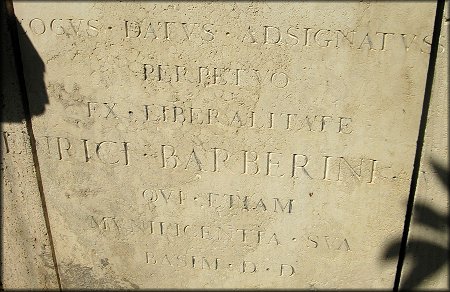 LOCVS · DATVS · ADSIGNATVS
PERPETVO
EX · LIBERALITATE
HENRICI · BARBERINI
QVI · ETIAM
MVNIFICENTIA · SVA
BASIM · D · D